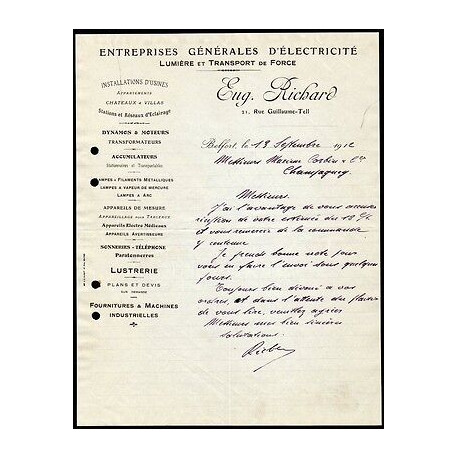 ENTREPRISES GÉNÉRALES D'ÉLECTRICITÉ
LUMIÈRE ET TRANSPORT DE FORCE
Eug. Richard
21, RUE GUILLAUME-TELL
INSTALLATIONS D'USINES
APPARTEMENTS
CHATEAUX & VILLAS
Stations et Réseaux d'Éclairage
DYNAMOS & MOTEURS
TRANSFORMATEURS
ACCUMULATEURS
Stationnaires et Transportables
LAMPES A FILAMENTS MÉTALLIQUES
LAMPES A VAPEUR DE MERCURE
LAMPES A ARC
APPAREILS DE MESURE
APPAREILLAGE POUR TABLEAUX
Appareils Electro Médicaux
APPAREILS AVERTISSEURS
SONNERIES - TÉLÉPHONE
Paratonnerres
LUSTRERIE
PLANS ET DEVIS
SUR DEMANDE
FOURNITURES & MACHINES
INDUSTRIELLES
Belfort, le 13 Septembre 1912
Messieurs Maxime &
Champagney
Messieurs,
J'ai l'avantage de vous accuser
réception de votre estimée du 12 Ct
et vous remercie de la commande
y contenue
Je prends bonne note pour
vous en faire l'envoi sous quelques
jours.
Toujours bien dévoué à vos
ordres, et dans l'attente du plaisir
de vous lire, veuillez agréer
Messieurs mes bien sincères
salutations.